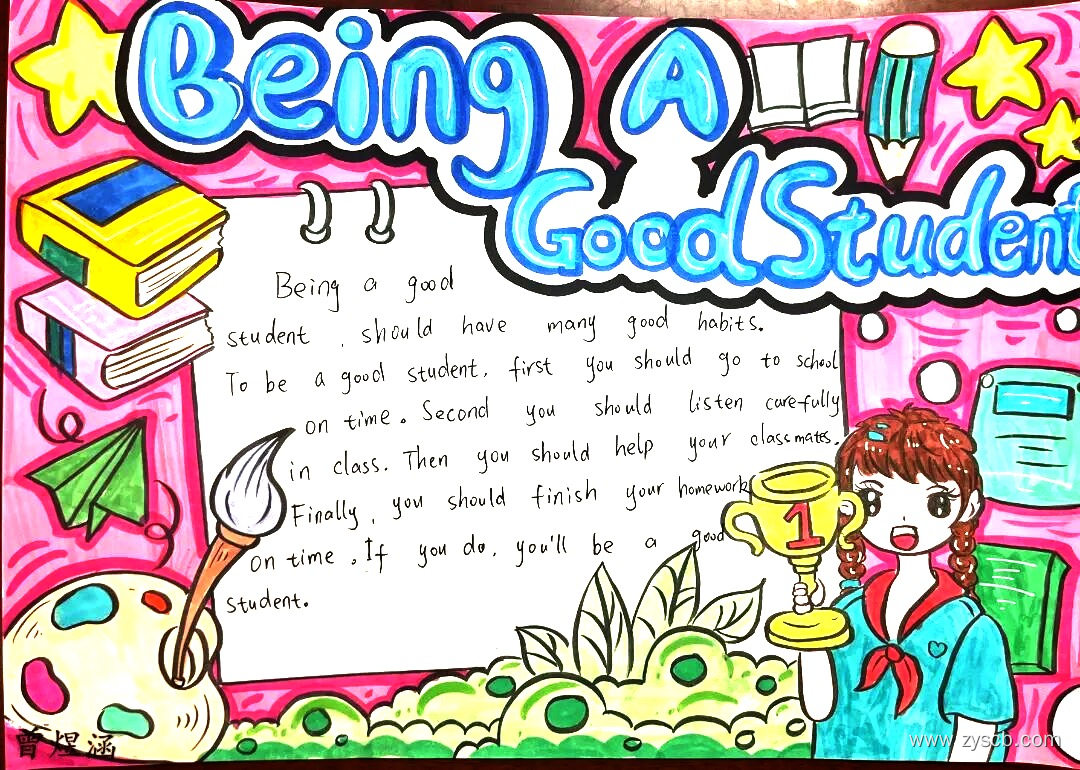 Being A
Good Student
Being a good
student , should have many good habits.
To be a good student, first you should go to school
on time. Second you should listen carefully
in class. Then you should help your classmates.
Finally, you should finish your homework
on time. If you do, you'll be a good
student.
1
曾煜涵
www.zyscb.com